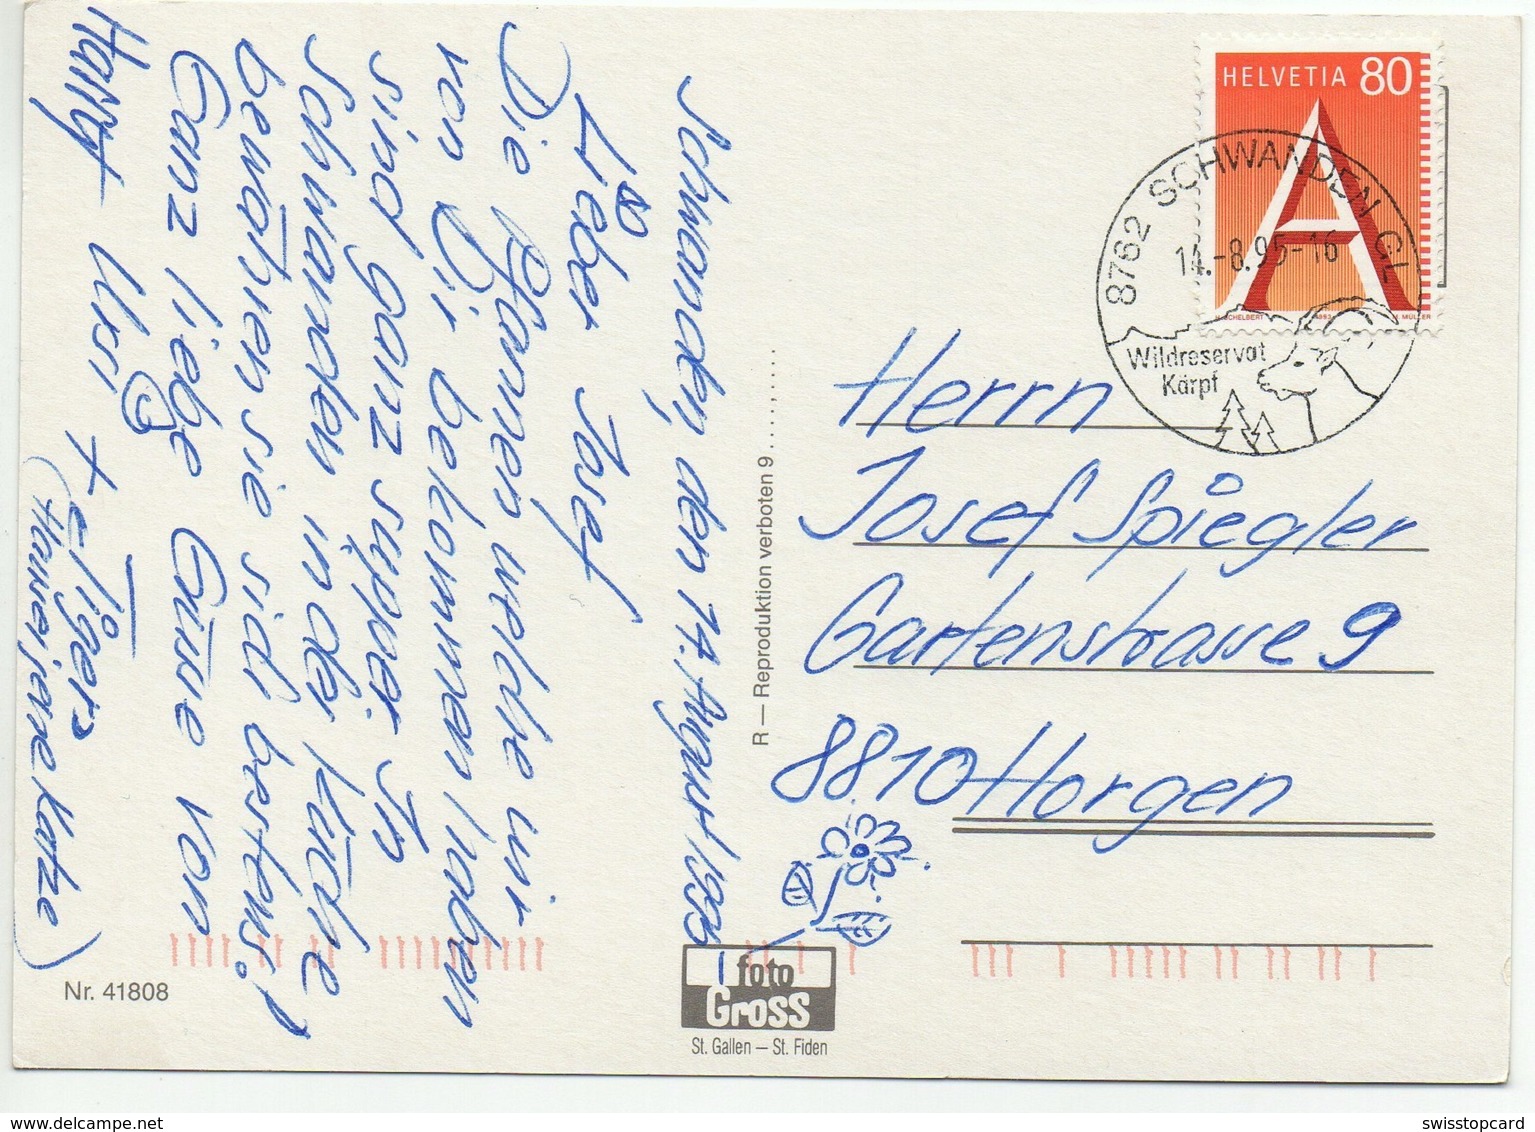 Schwanden, den 14. August 1995
Lieber Josef
Die Pfannen welche wir
von Dir bekommen haben
sind ganz supper. In
Schwanden in der Küche
bewähren sie sich bestens!
Ganz liebe Grüsse von
Harry Ursi +
(Hansei, eine Katze)
HELVETIA 80
8762 SCHWANDEN GL
14.-8.95-16
Wildreservat
Kärpf
Herrn
Josef Spiegler
Gartenstrasse 9
8810 Horgen
R — Reproduktion verboten 9
foto
Gross
St. Gallen — St. Fiden
Nr. 41808
swisstopcard